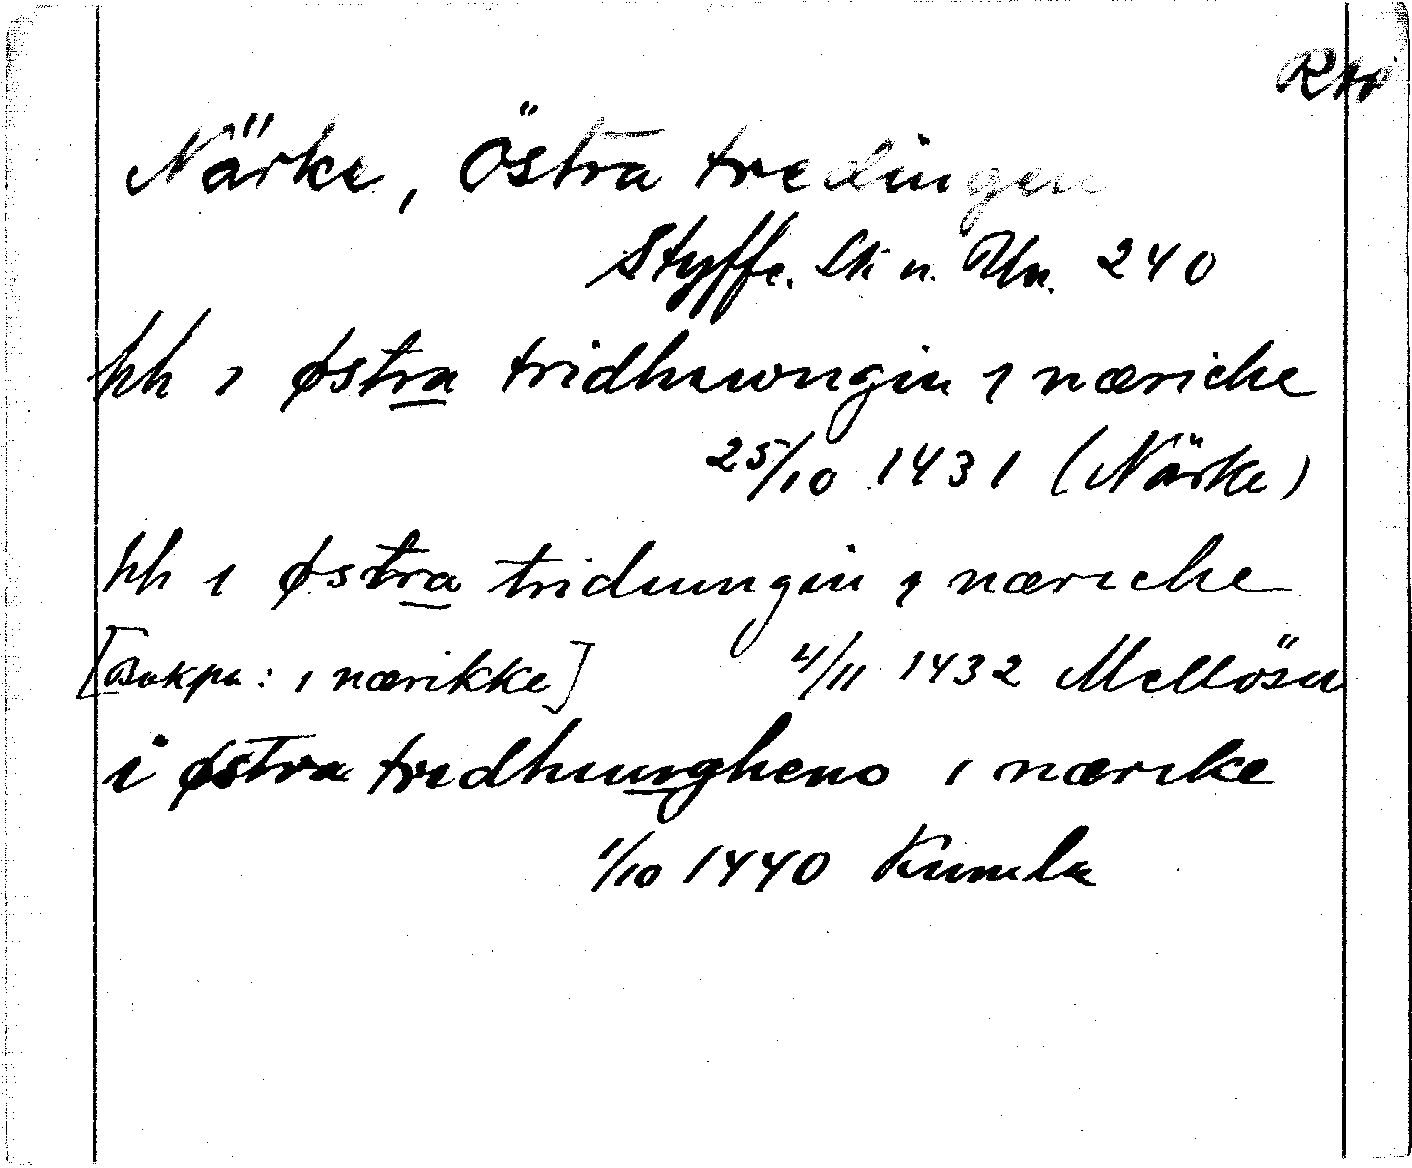 Närke, Östra tredingen
Styffe. Sk. u. Un. 240
hh i østra tridhwngin i næriche
25/10 1431 (Närke)
hh i østra tridiungin i næriche
[Bakpå: i nærikke] 4/11 1432 Mellösa
i østra tredhiungheno i nærike
1/10 1440 Kumla